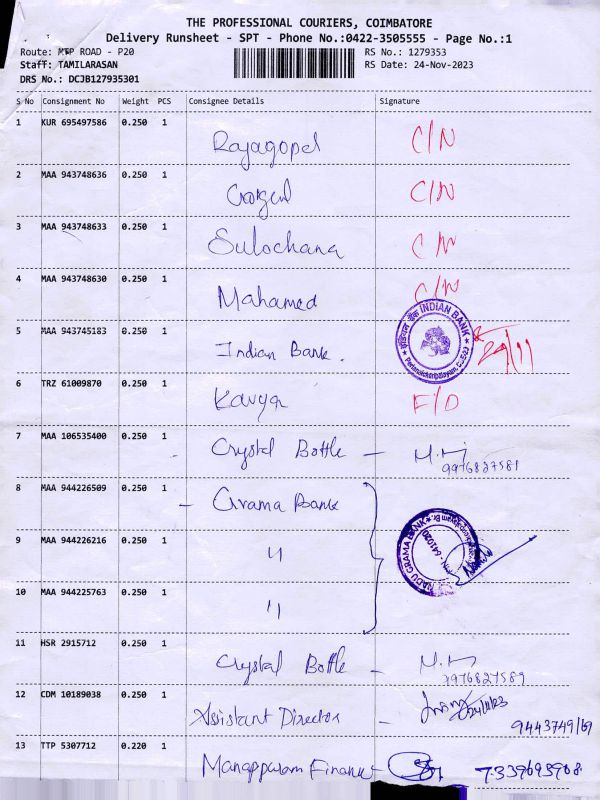 THE PROFESSIONAL COURIERS, COIMBATORE
Delivery Runsheet - SPT - Phone No.:0422-3505555 - Page No.:1
Route: MTP ROAD - P20 RS No.: 1279353
Staff: TAMILARASAN RS Date: 24-Nov-2023
DRS No.: DCJB127935301
S No Consignment No Weight PCS Consignee Details Signature
1 KUR 695497586 0.250 1 Rajagopal C/N
2 MAA 943748636 0.250 1 C/N
3 MAA 943748633 0.250 1 Sulochana C/N
4 MAA 943748630 0.250 1 Mahamed C/N
5 MAA 943745183 0.250 1 Indian Bank. INDIAN BANK 24/11
6 TRZ 61009870 0.250 1 Kavya F/D
7 MAA 106535400 0.250 1 Crystal Bottle - 9976827589
8 MAA 944226509 0.250 1 - Grama Bank
9 MAA 944226216 0.250 1 " NADU GRAMA BANK 641020
10 MAA 944225763 0.250 1 "
11 HSR 2915712 0.250 1 Crystal Bottle - 9976827589
12 CDM 10189038 0.250 1 Assistant Director - 9443749169
13 TTP 5307712 0.220 1 Manappuram Finance 7339693908